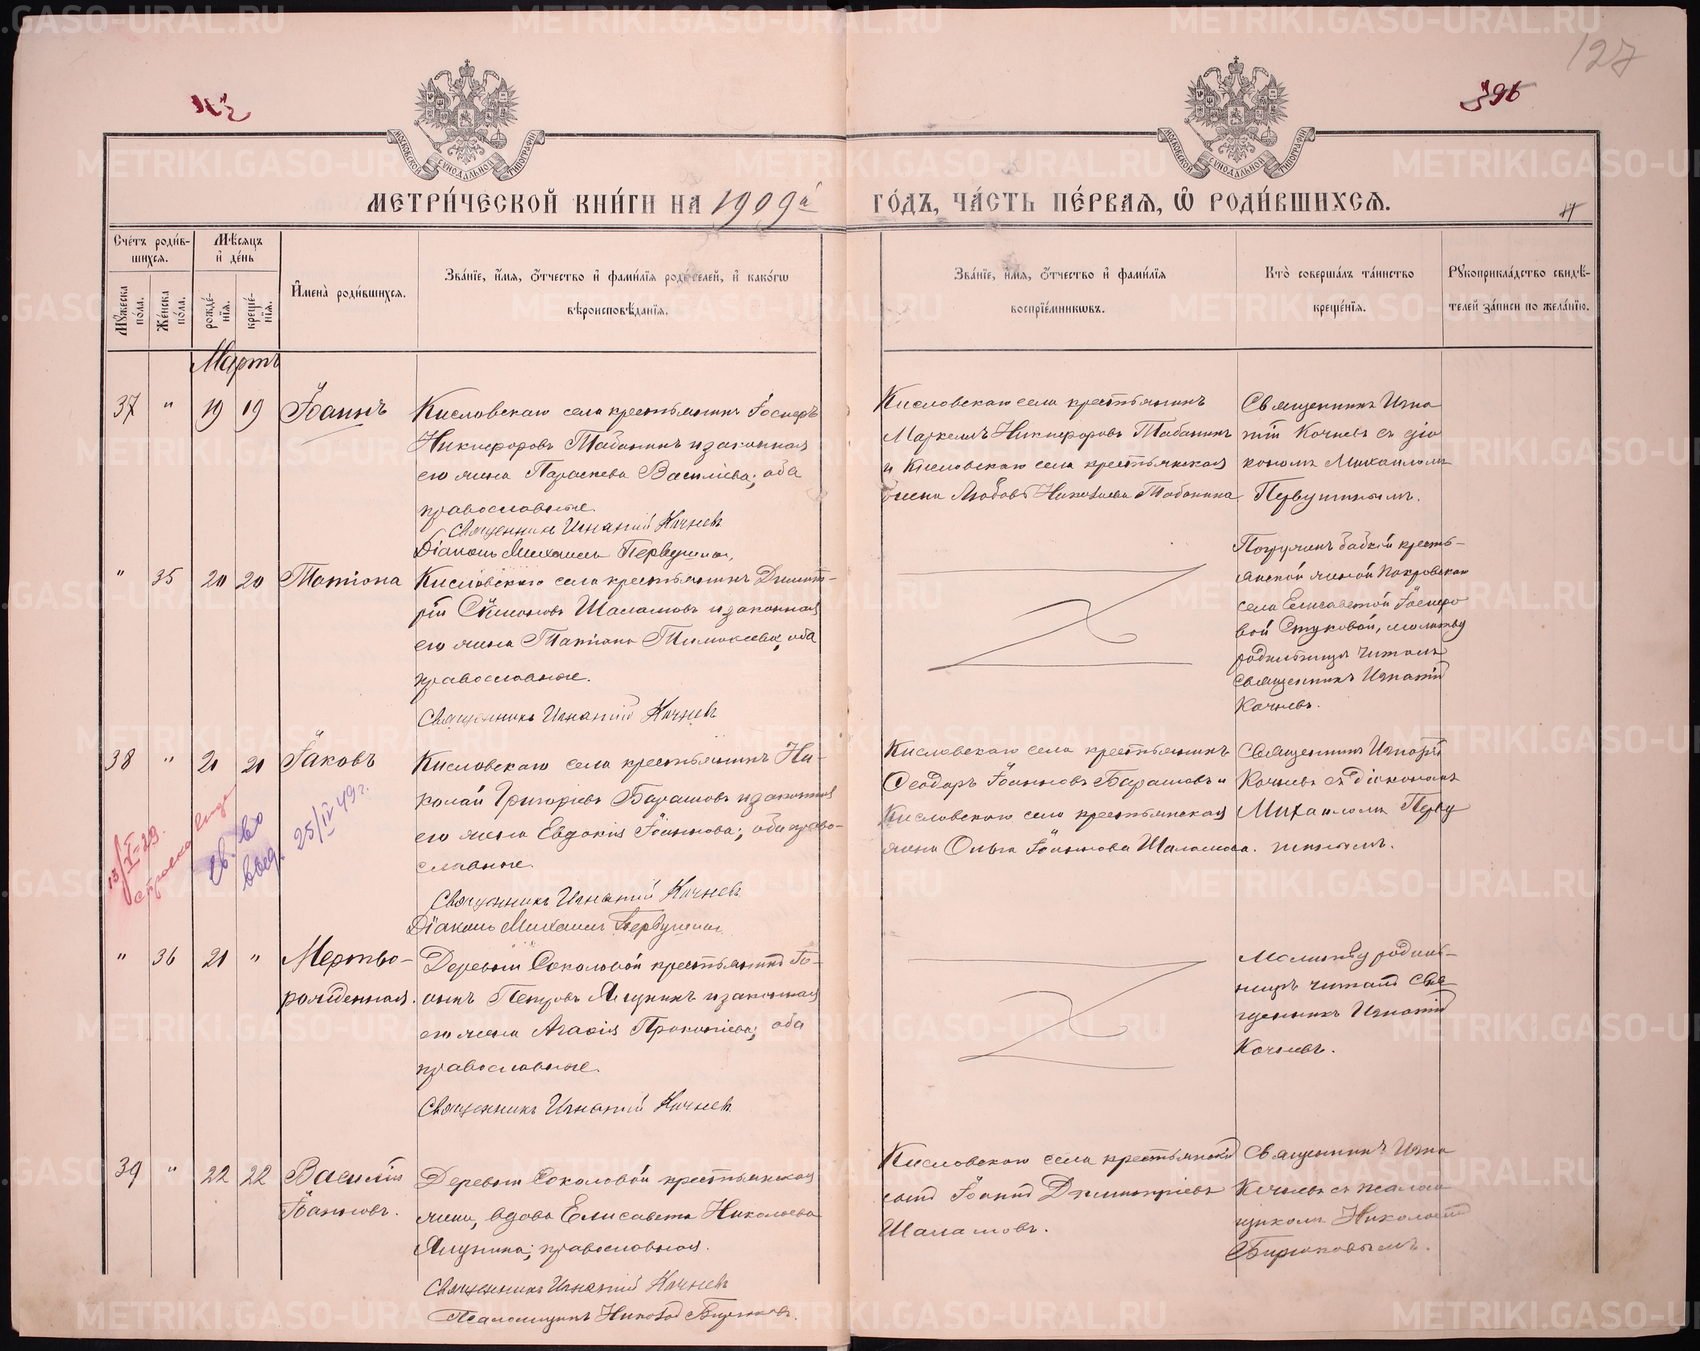 127
396
МОСКОВСКОЙ СѴНОДАЛЬНОЙ ТИПОГРАФІИ
МОСКОВСКОЙ СѴНОДАЛЬНОЙ ТИПОГРАФІИ
МЕТРИ́ЧЕСКОЙ КНИ́ГИ НА 1909й ГО́ДЪ, ЧА́СТЬ ПЕ́РВАЯ, Ѡ РОДИ́ВШИХСЯ.
Сче́тъ роди́в-
шихся.
Му́жеска по́ла.
Же́нска по́ла.
Мѣ́сяцъ
и де́нь
рожде́-
нїя.
креще́-
нїя.
Имена̀ роди́вшихся.
Зва́нїе, и́мя, о́тчество и фами́лїя роди́телей, и како́гѡ
вѣроисповѣ́данїя.
Зва́нїе, и́мя, о́тчество и фами́лїя
воспрїе́мникѡвъ.
Кто̀ соверша́лъ та́инство
креще́нїя.
Рукоприкла́дство свидѣ́-
телей за́писи по жела́нїю.
Мартъ
37 " 19 19 Іоаннъ
Кисловскаго села крестьянинъ Іосифъ
Никифоровъ Табанинъ и законная
его жена Параскева Василіева; оба
православные.
Священникъ Игнатій Кочневъ
Діаконъ Михаилъ Первушинъ.
Кисловскаго села крестьянинъ
Маркеллъ Никифоровъ Табанинъ
и Кисловскаго села крестьянская
жена Любовь Николаева Табанина
Священникъ Игна
тій Кочневъ съ діа
кономъ Михаиломъ
Первушинымъ.
" 35 20 20 Татіана
Кисловскаго села крестьянинъ Димит-
рій Симеоновъ Шаламовъ и законная
его жена Татіана Тимофеева, оба
православные.
Священникъ Игнатій Кочневъ
Погружен бабкой кресть-
янской женой Покровскаго
села Елисаветой Іосифо
вой Стуковой, молитву
родильницѣ читалъ
священникъ Игнатій
Кочневъ.
38 " 21 21 Іаковъ
Кисловскаго села крестьянинъ Ни-
колай Григоріевъ Барашовъ и законная
его жена Евдокія Іоаннова; оба право-
славные.
Священникъ Игнатій Кочневъ
Діаконъ Михаилъ Первушинъ
Кисловскаго села крестьянинъ
Ѳеодоръ Іоанновъ Барашовъ и
Кисловскаго села крестьянская
жена Ольга Іоаннова Шаламова.
Священникъ Игнатій
Кочневъ съ діакономъ
Михаиломъ Перву
шинымъ.
25/IV 49 г.
" 36 21 " Мертво-
рожденная.
Деревни Соколовой крестьянинъ Іо-
аннъ Петровъ Ялунинъ и законная
его жена Агафія Прокопіева; оба
православные.
Священникъ Игнатій Кочневъ
Молитву родиль-
ницѣ читалъ свя-
щенникъ Игнатій
Кочневъ.
39 " 22 22 Василій
Іоанновъ.
Деревни Соколовой крестьянская
жена, вдова Елисавета Николаева
Ялунина; православная.
Священникъ Игнатій Кочневъ
Псаломщикъ Николай Бирюковъ.
Кисловскаго села крестьянскій
сынъ Іоаннъ Димитріевъ
Шаламовъ.
Священникъ Игна
Кочневъ съ псалом
щикомъ Николаемъ
Бирюковымъ.
METRIKI.GASO-URAL.RU